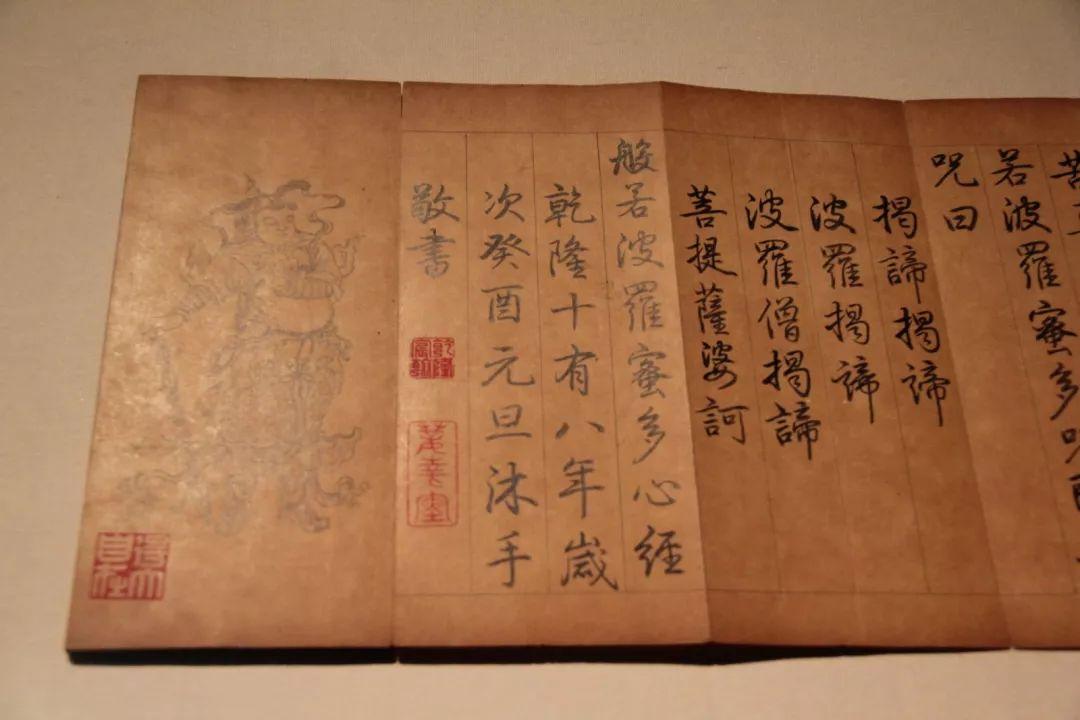 若波羅蜜多呪即
呪曰
揭諦揭諦
波羅揭諦
波羅僧揭諦
菩提薩婆訶
般若波羅蜜多心經
乾隆十有八年歲
次癸酉元旦沐手
敬書
乾隆
宸翰
得大
自在